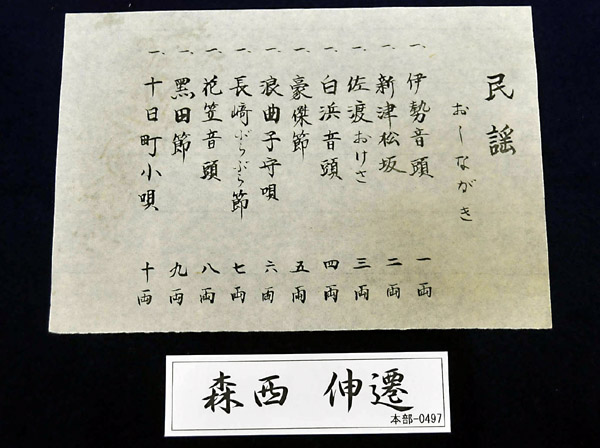 民謡
おしながき
一、伊勢音頭 一両
一、新津松坂 二両
一、佐渡おけさ 三両
一、白浜音頭 四両
一、豪傑節 五両
一、浪曲子守唄 六両
一、長崎ぶらぶら節 七両
一、花笠音頭 八両
一、黒田節 九両
一、十日町小唄 十両
森西 伸遷
本部-0497